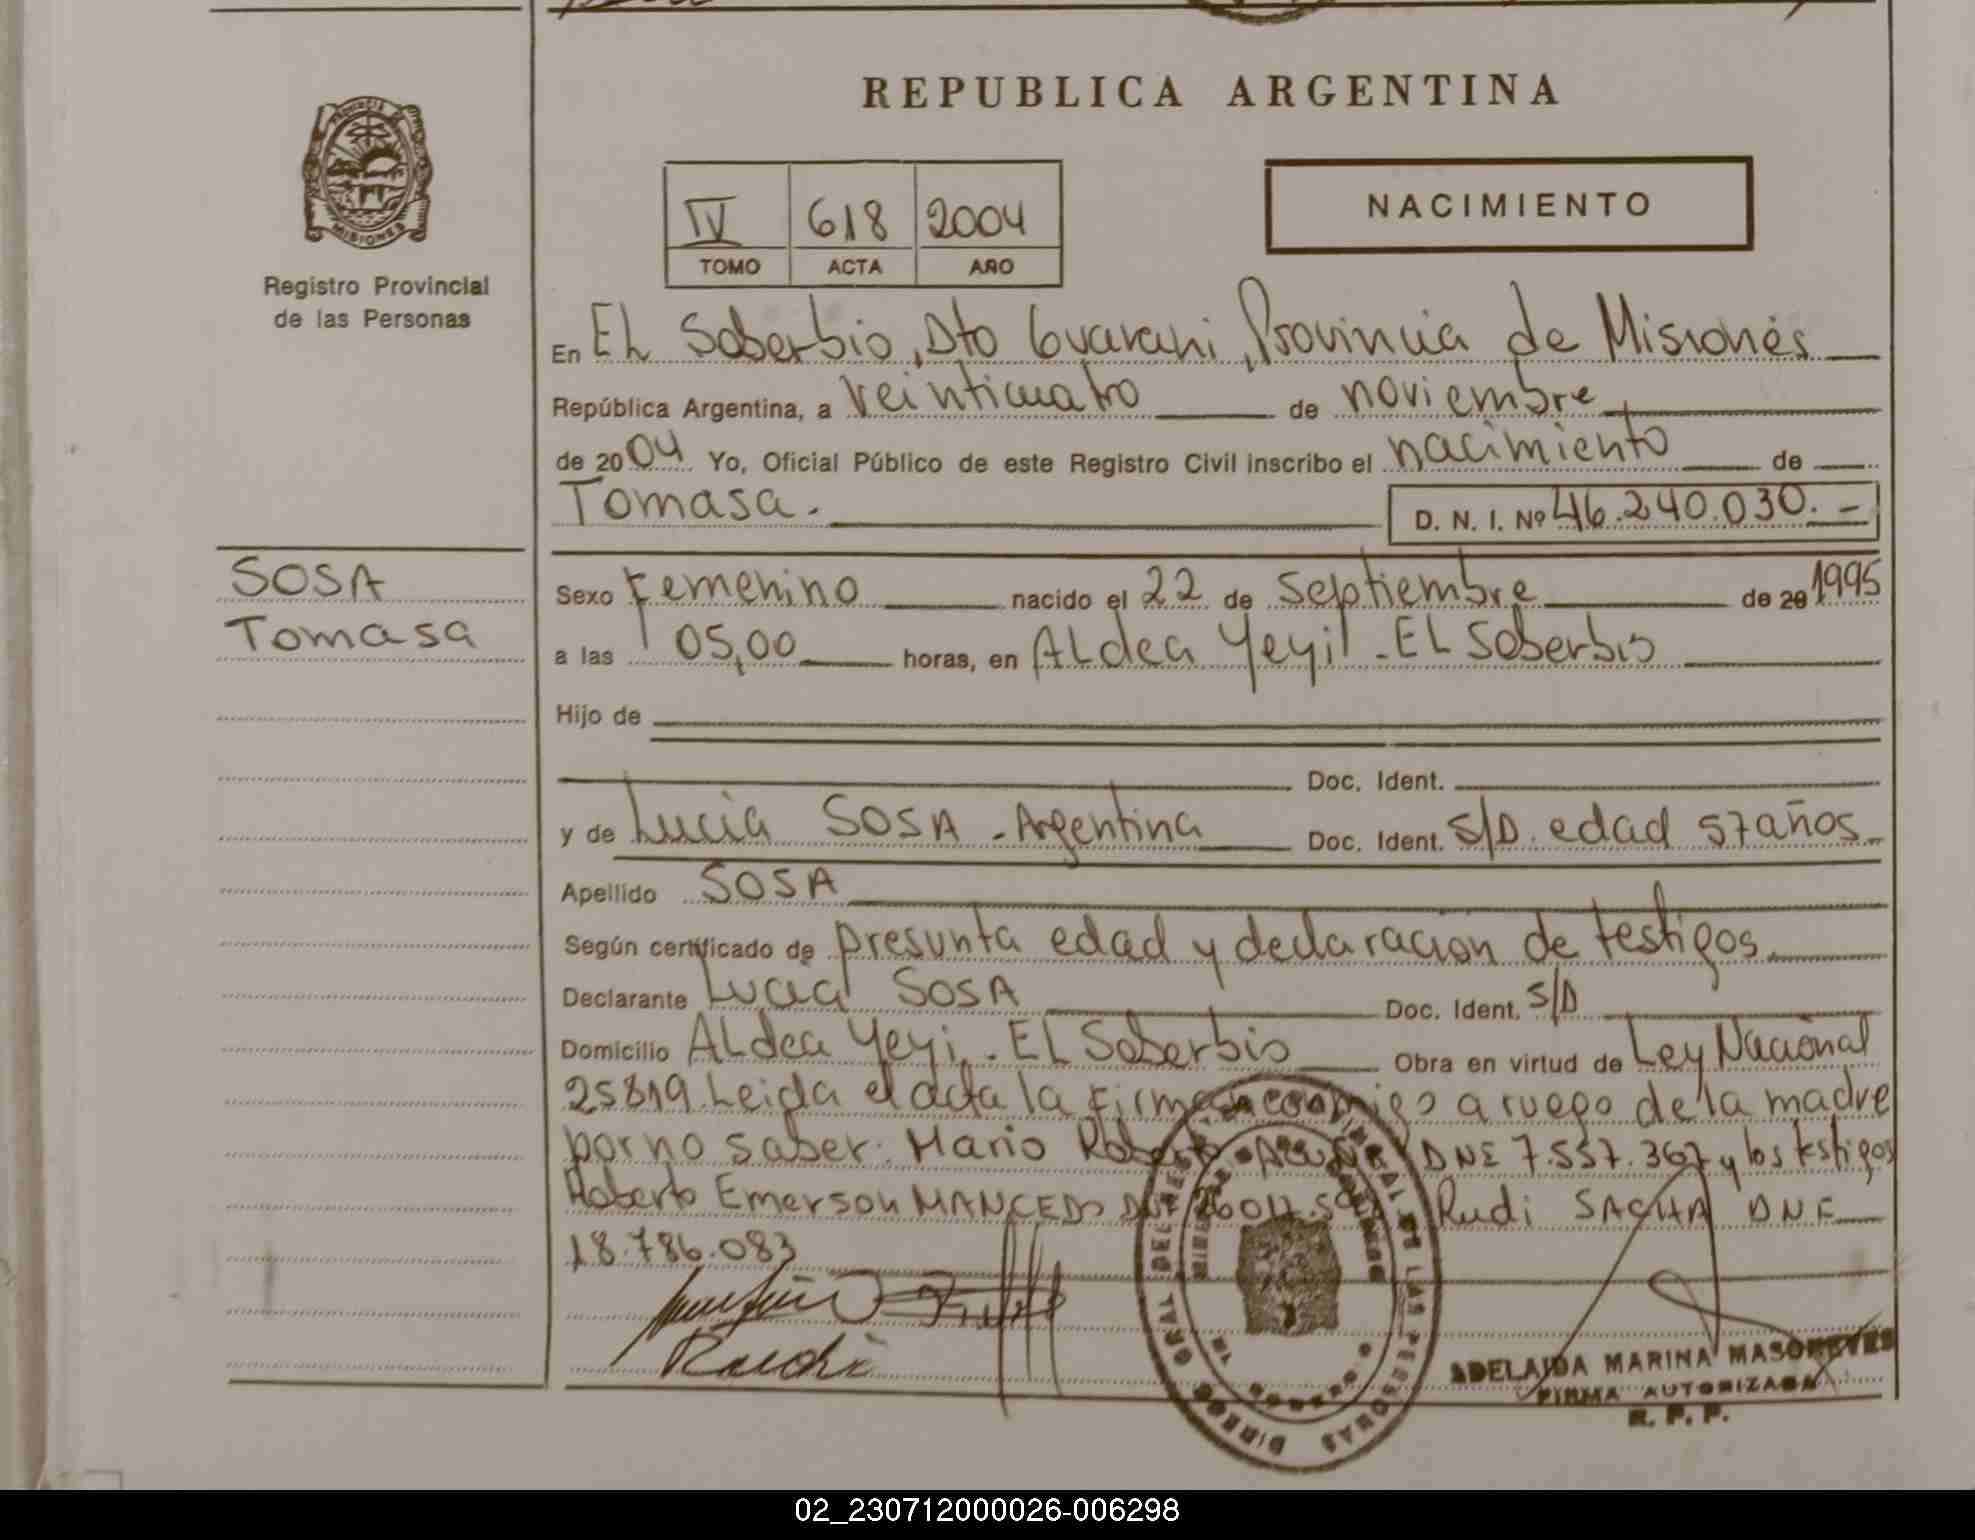 REPUBLICA ARGENTINA
PROVINCIA DE
MISIONES
Registro Provincial
de las Personas
IV 618 2004
TOMO ACTA AÑO
NACIMIENTO
En EL Soberbio, Dto Guarani, Provincia de Misiones
República Argentina, a veinticuatro de noviembre
de 2004 Yo, Oficial Público de este Registro Civil inscribo el nacimiento de
Tomasa.
D. N. I. Nº 46.240.030.-
SOSA
Tomasa
Sexo Femenino nacido el 22 de Septiembre de 20 1995
a las 05,00 horas, en ALdea Yeyil - EL Soberbio
Hijo de
Doc. Ident.
y de Lucia SOSA - Argentina Doc. Ident. S/D. edad 57 años
Apellido SOSA
Según certificado de presunta edad y declaracion de testigos
Declarante Lucia SOSA Doc. Ident. S/D
Domicilio ALdea Yeyi. - EL Soberbio Obra en virtud de Ley Nacional
25819. Leida el acta la firman conmigo a ruego de la madre
por no saber. Mario Roberto DNE 7.557.367 y los testigos
Roberto Emerson MANCEDO Rudi SACHA DNE
18.786.083
Rudi
ADELAIDA MARINA
FIRMA AUTORIZADA
R. P. P.
02_230712000026-006298